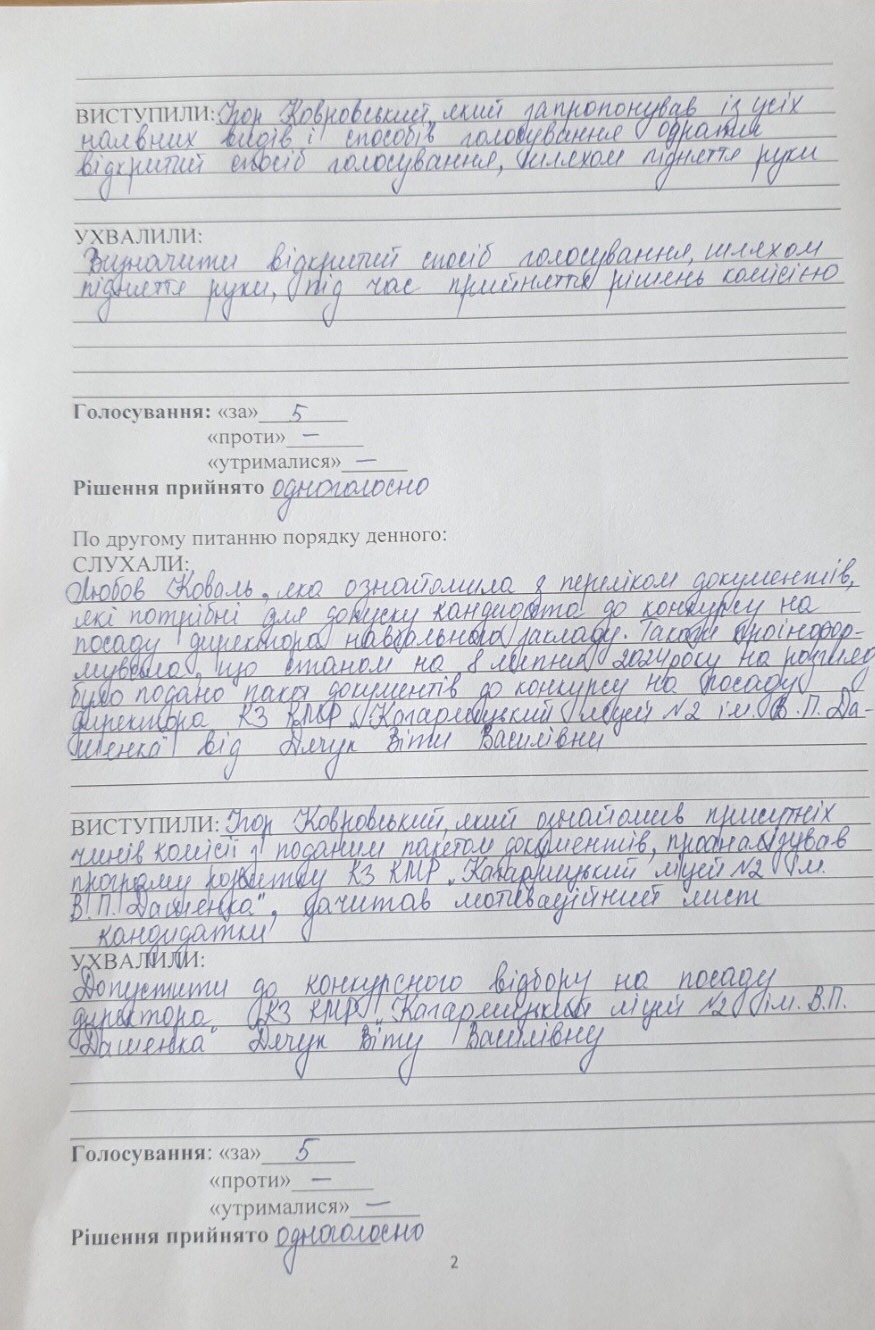 ВИСТУПИЛИ: Ігор Ковровський, який запропонував із усіх
наявних видів і способів голосування обрати
відкритий спосіб голосування, шляхом підняття руки
УХВАЛИЛИ:
Визначити відкритий спосіб голосування, шляхом
підняття руки, під час прийняття рішень комісією
Голосування: «за» 5
«проти» —
«утрималися» —
Рішення прийнято одноголосно
По другому питанню порядку денного:
СЛУХАЛИ:
Любов Коваль, яка ознайомила з переліком документів,
які потрібні для допуску кандидата до конкурсу на
посаду директора навчального закладу. Також проінфор-
мувала, що станом на 8 липня 2024 року на розгляд
було подано пакет документів до конкурсу на посаду
директора КЗ КМР „Кагарлицький ліцей №2 ім. В.П. Да-
шенка" від Дячук Віти Василівни
ВИСТУПИЛИ: Ігор Ковровський, який ознайомив присутніх
членів комісії з поданим пакетом документів, проаналізував
програму розвитку КЗ КМР „Кагарлицький ліцей №2 ім.
В.П. Дашенка", зачитав мотиваційний лист
кандидатки
УХВАЛИЛИ:
Допустити до конкурсного відбору на посаду
директора КЗ КМР „Кагарлицький ліцей №2 ім. В.П.
Дашенка" Дячук Віту Василівну
Голосування: «за» 5
«проти» —
«утрималися» —
Рішення прийнято одноголосно
2